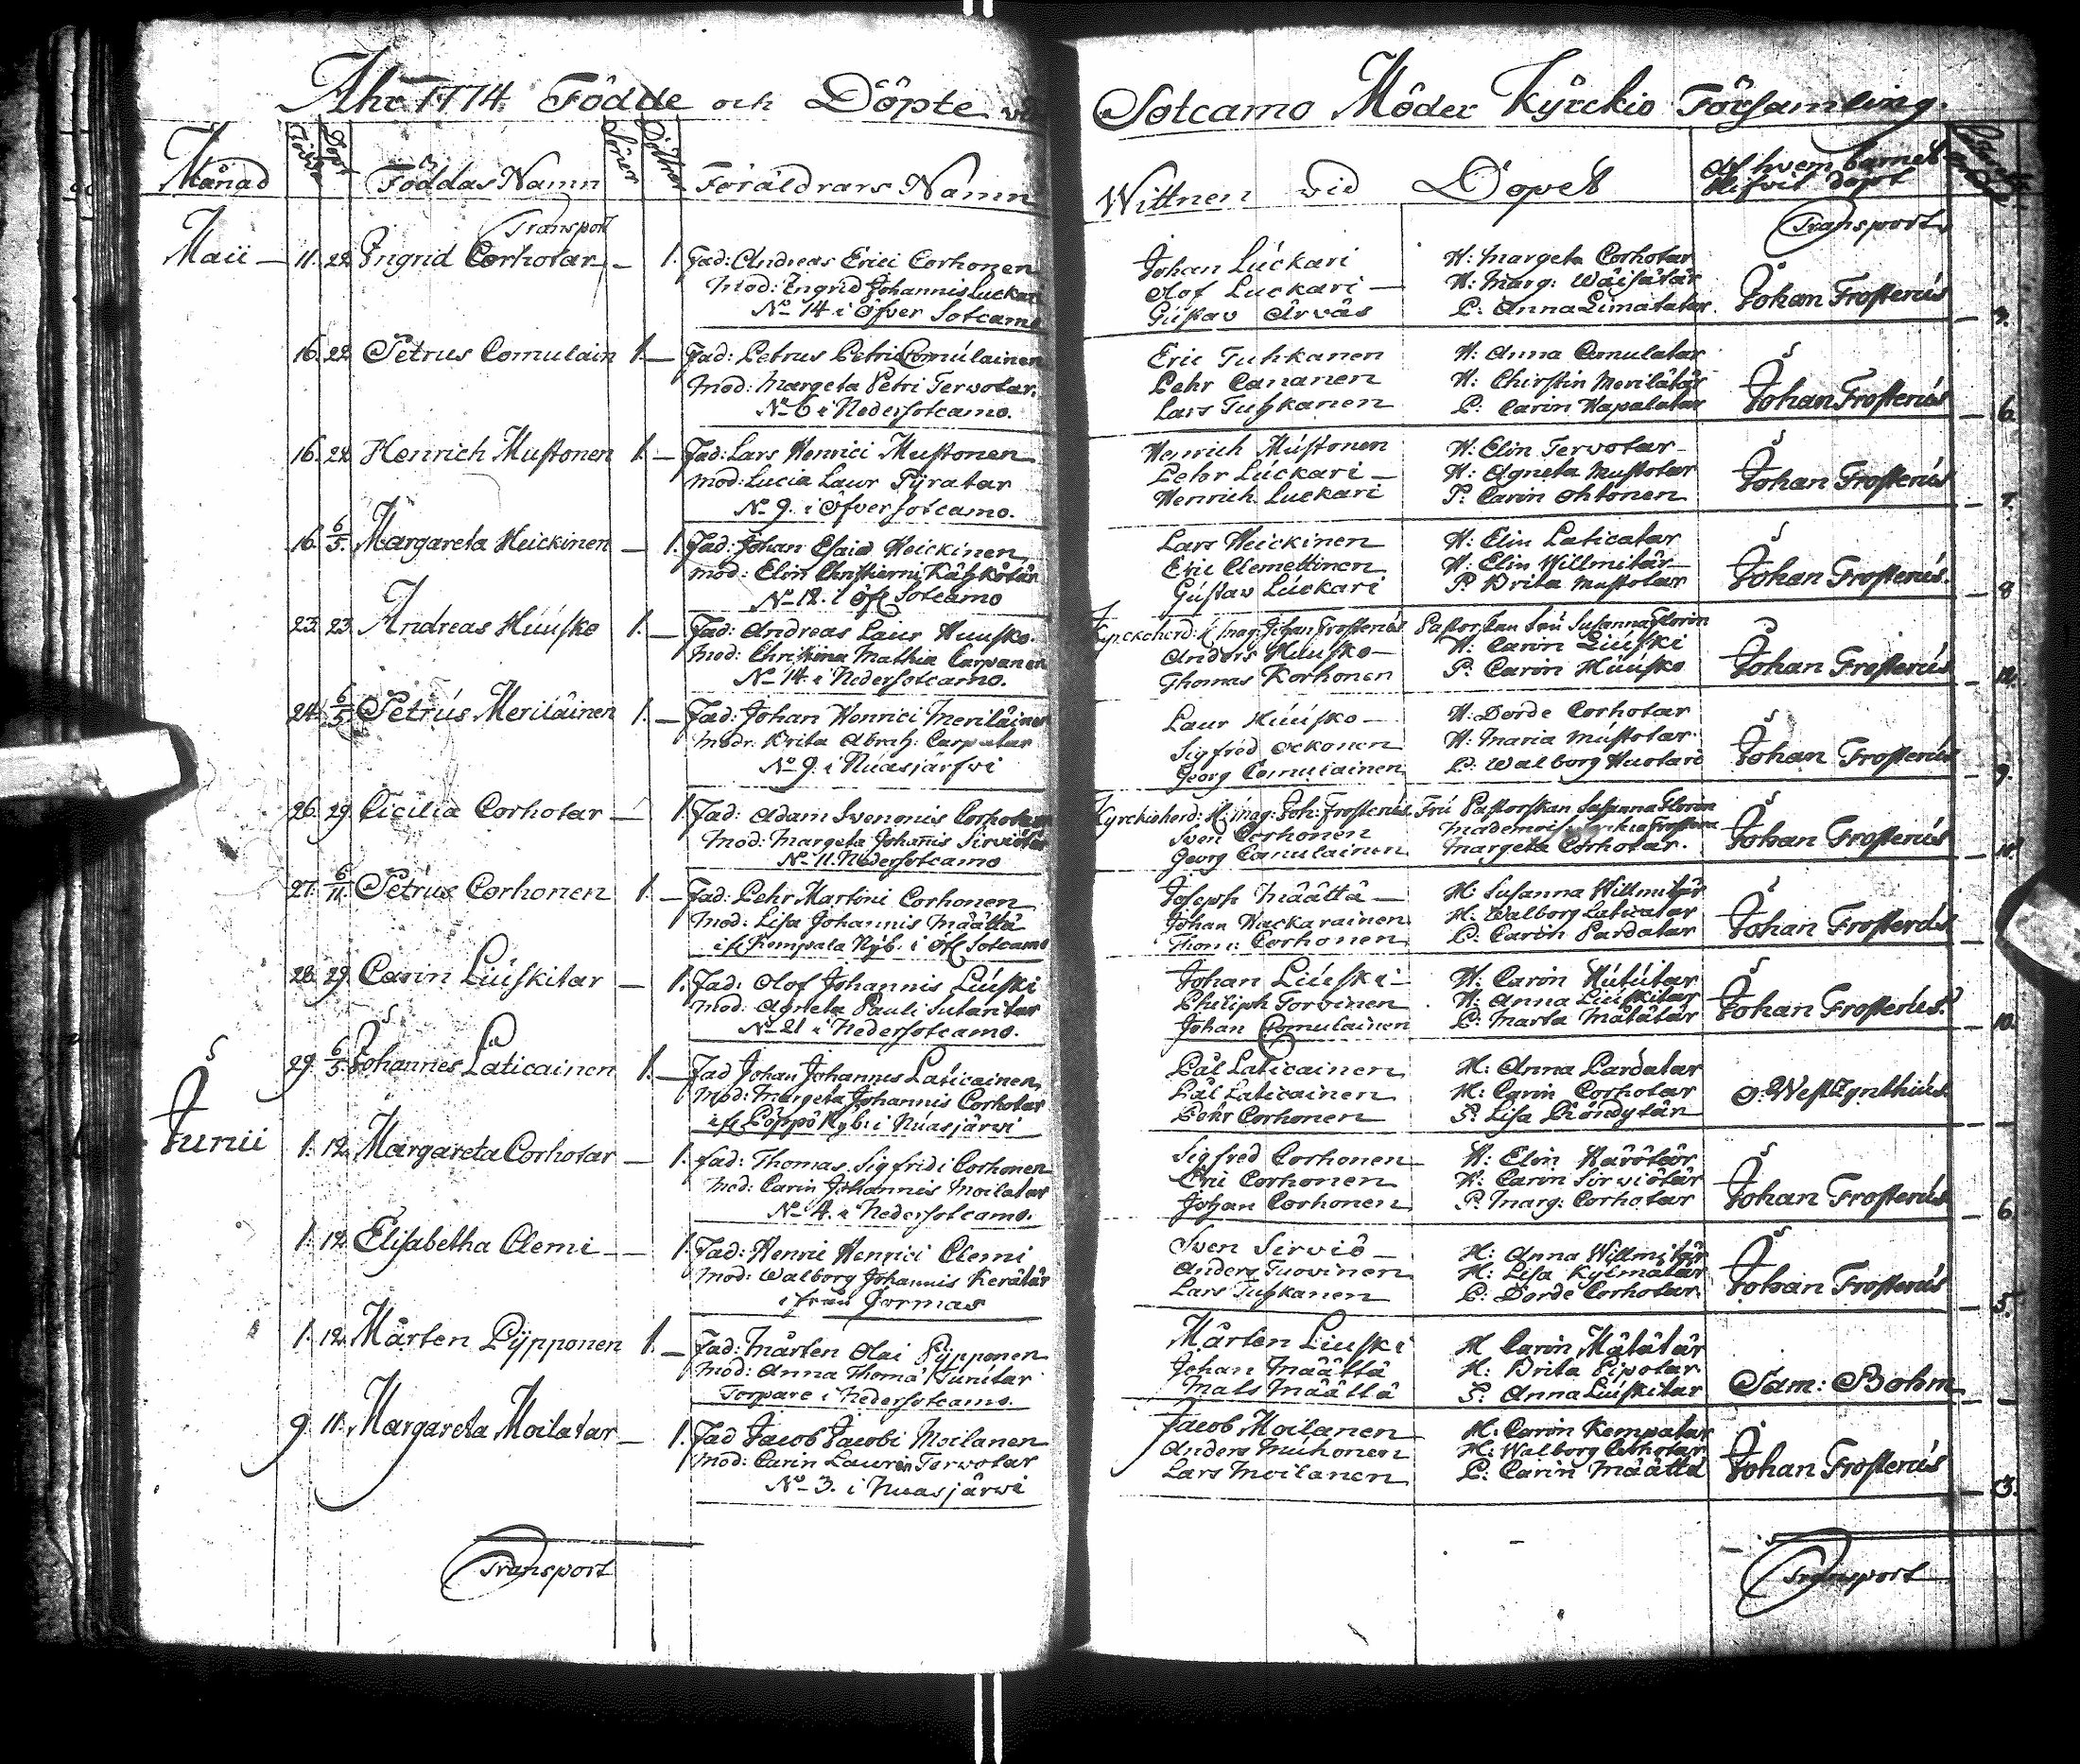 Åhr 1774. Födde och Döpte vid Sotcamo Moder Kyrckio Församling.
Månad Födde Döpt Föddas Namn Söner Döttrar Föräldrars Namn Wittnen vid Dopet Af hvem barnet blifvit döpt
Transport Transport
Maii 11. 22. Ingrid Corhotar 1. Fad: Andreas Erici Corhonen Johan Luckari H: Margeta Corhotar Johan Frosterus
Mod: Ingrid Johannis Luckari Olof Luckari H: Marg: Wäisätär
No 14 i Öfver Sotcamo Gustav Arväs P: Anna Limatatar
16. 22. Petrus Comulain 1. Fad: Petrus Petri Comulainen Eric Tuhkanen H: Anna Comulatar Johan Frosterus 6.
Mod: Margeta Petri Tervotar. Pehr Cananen H: Chirstin Merilätär
No 6 i Nedersotcamo. Lars Tuhkanen P: Carin Kapalatar
16. 22. Henrich Mustonen 1. Fad: Lars Henrici Mustonen Henrich Mustonen H: Elin Tervotar Johan Frosterus 7.
Mod: Lucia Laur Pyratar Petor Luckari H: Agneta Mustotar
No 9. i Öfversotcamo. Henrich Luckari P: Carin Ohtonen
16. 6/5. Margareta Heickinen 1. Fad: Johan Esaiæ Heickinen Lars Heickinen H: Elin Laticatar Johan Frosterus. 8
Mod: Elin Christierni Kähkötär Eric Clemettinen H: Elin Willmitär
No 12. i Öfr Sotcamo Gustav Luckari P: Brita Mustotar
23. 23. Andreas Huusko 1. Fad: Andreas Laur Huusko. Kyrckoherd: H mag: Johan Frosterus Pastorskan Fru Susanna Florin Johan Frosterus 12.
Mod: Christina Mathiæ Carpanen Anders Huusko H: Carin Liuski
No 14 i Nedersotcamo. Thomas Korhonen P: Carin Huusko
24. 6/5 Petrus Meriläinen 1. Fad: Johan Henrici Meriläinen Laur Huusko H: Dorde Corhotar Johan Frosterus 9.
Modr: Brita Abrah: Carpatar Sigfred Ockonen H: Maria Mustotar
No 9. i Nuasjärfvi Georg Comulainen P: Walborg Huotari
26. 29. Cicilia Corhotar 1. Fad: Adam Svenonis Corhonen Kyrckioherd: H: mag: Joh: Frosterus Fru Pastorskan Susanna Florin Johan Frosterus 11.
Mod: Margeta Johannis Sirviötär Sven Corhonen Mademois
No 11. Nedersotcamo Georg Comulainen Margeta Corhotar.
27. 6/11. Petrus Corhonen 1. Fad: Pehr Martini Corhonen Joseph Määttä H: Susanna Willmitär Johan Frosterus
Mod: Lisa Johannis Määttä Johan Hackarainen H: Walborg Laticatar
ifr Kempala Nyb. i Öfr Sotcamo Thom: Corhonen P: Carin Pardatar
28. 29. Carin Liuskitar 1. Fad: Olof Johannis Liuski Johan Liuski H: Carin Hutútar Johan Frosterus. 10.
Mod: Agneta Pauli Sutaritar Philiph Torvinen H: Anna Liuskitar
No 21 i Nedersotcamo. Johan Comulainen P: Marta Mätätär
29. 6/5. Johannes Laticainen 1. Fad Johan Johannis Laticainen Pål Laticainen H: Anna Pardatar O: Westzynthius
Mod: Margeta Johannis Corhotar Pål Laticainen H: Carin Corhotar
ifr Pöppö Nyb: i Nuasjärwi Pehr Corhonen P: Lisa
Junii 1. 12. Margareta Corhotar 1. Fad: Thomas Sigfridi Corhonen Sigfred Corhonen H: Elin Johan Frosterus 6
Mod: Carin Johannis Moilatar Eric Corhonen H: Carin Sirviötär
No 4. i Nedersotcamo. Johan Corhonen P: Marg: Corhotar
1. 12. Elisabetha Clemi 1. Fad: Henric Henrici Clemi Sven Serviö H: Anna Willmitär Johan Frosterus 5.
Mod: Walborg Johannis Kerätär Anders Tuovinen H: Lisa Kylmätär
ifrån Jormas Lars Tuhkanen P: Dorde Corhotar
1. 12. Mårten Pypponen 1. Fad: Mårten Olai Pypponen Mårten Liuski H Carin Mätätär Sam: Bohm
Mod: Anna Thomæ Tunitar Johan Määttä H: Brita Pipotar
Torpare i Nedersotcamo. Mats Määttä P: Anna Liuskitar
9. 11. Margareta Moilatar 1. Fad Jacob Jacobi Moilanen Jacob Moilanen H: Carin Kempatar Johan Frosterus 3.
Mod: Carin Laurin Tervotar Anders Muhonen H: Walborg Corhotar
No 3. i Nuasjärwi Lars Moilanen P: Carin Määttä
Transport Transport